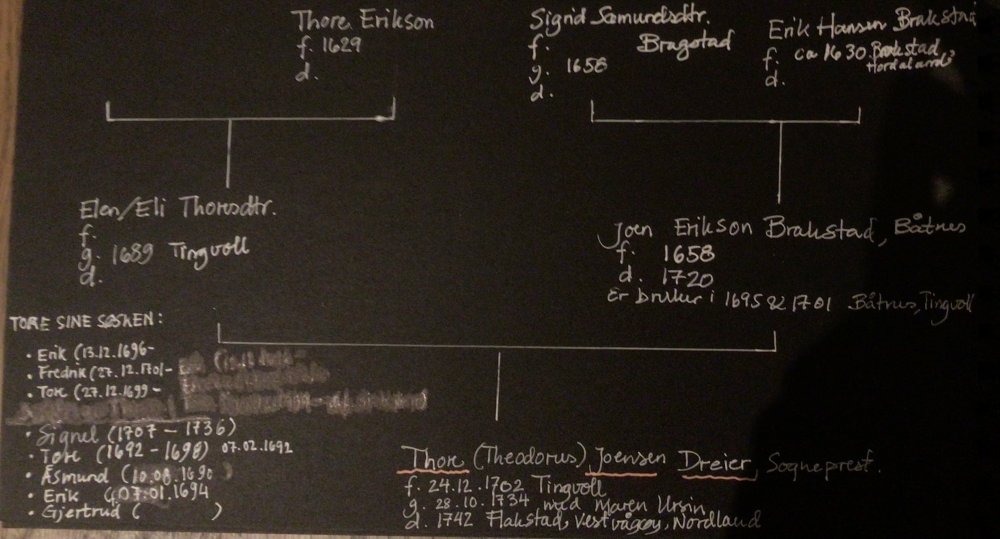 Thore Erikson
f. 1629
d.
Sigrid Samundsdtr.
f. Bragstad
g. 1658
d.
Erik Hansen Brakstad
f. ca 1630 Brakstad
Hordaland?
d.
Elen/Eli Thoresdtr.
f.
g. 1689 Tingvoll
d.
Joen Erikson Brakstad, Båtnes
f. 1658
d. 1720
Er bruker i 1695 & 1701 Båtnes, Tingvoll
TORE SINE SØSKEN:
• Erik (13.12.1696-
• Fredrik (27.12.1701-
• Tore (27.12.1699-
• Signel (1707 - 1736)
• Tore (1692 - 1698) 07.02.1692
• Åsmund (10.08.1690)
• Erik (07.01.1694
• Gjertrud ( )
Thore (Theodorus) Joensen Dreier, Sogneprest.
f. 24.12.1702 Tingvoll
g. 28.10.1734 med Maren Ursin
d. 1742 Flakstad, Vestvågøy, Nordland